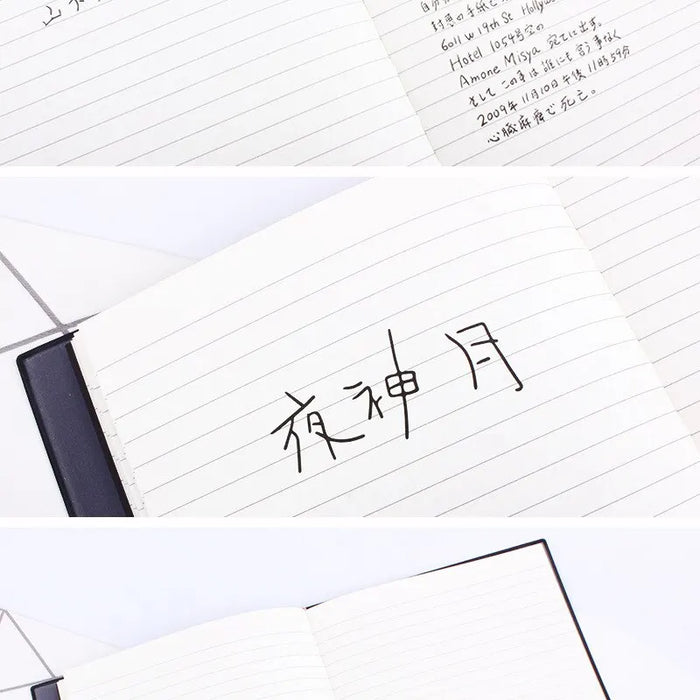 封悪の手紙と
6011 W 19th St Hollywo
Hotel 1054号室の
Amone Misya 宛てに出す。
そしてこの事は誰にも言う事なく
2009年11月10日午後11時59分
心臓麻痺で死亡。
夜神月